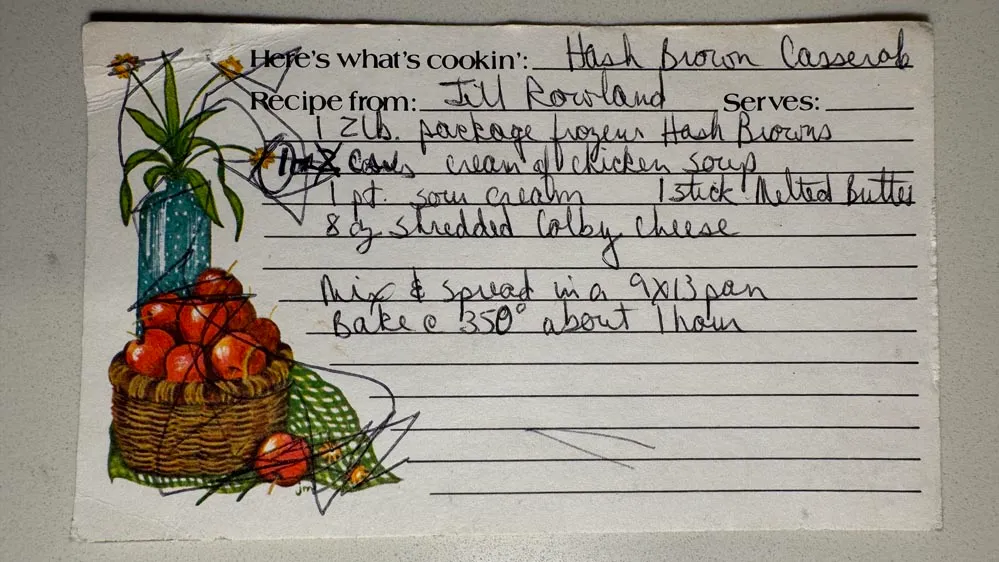 Here's what's cookin': Hash Brown Casserole
Recipe from: Jill Rowland Serves:
1 2 lb. package frozen Hash Browns
cans cream of chicken soup
1 pt. sour cream 1 stick Melted Butter
8 oz shredded Colby cheese
Mix & spread in a 9x13 pan
Bake @ 350° about 1 hour
jm